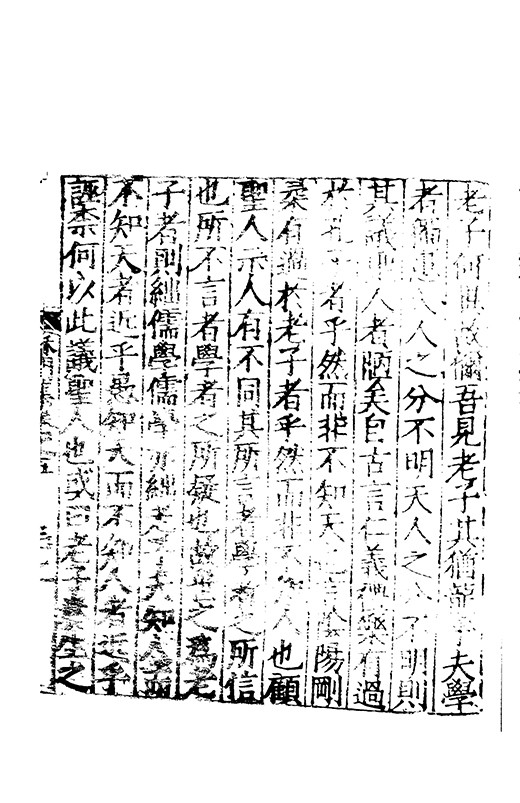 老子何也故爾吾見老子其猶龍乎夫學
者不天人之分不明天人之不明則
其議聖人者陋矣自古言仁義禮樂有過
於孔子者乎然而非不知天也言陰陽剛
柔有過於老子者乎然而非不知人也顧
聖人示人有不同其所言者學者之所信
也所不言者學者之所疑也故學之為老
子者則絀儒學儒學亦絀老子夫知人而
不知天者近乎愚知天而不知人者近乎
誣柰何以此議聖人也或曰老子養生之